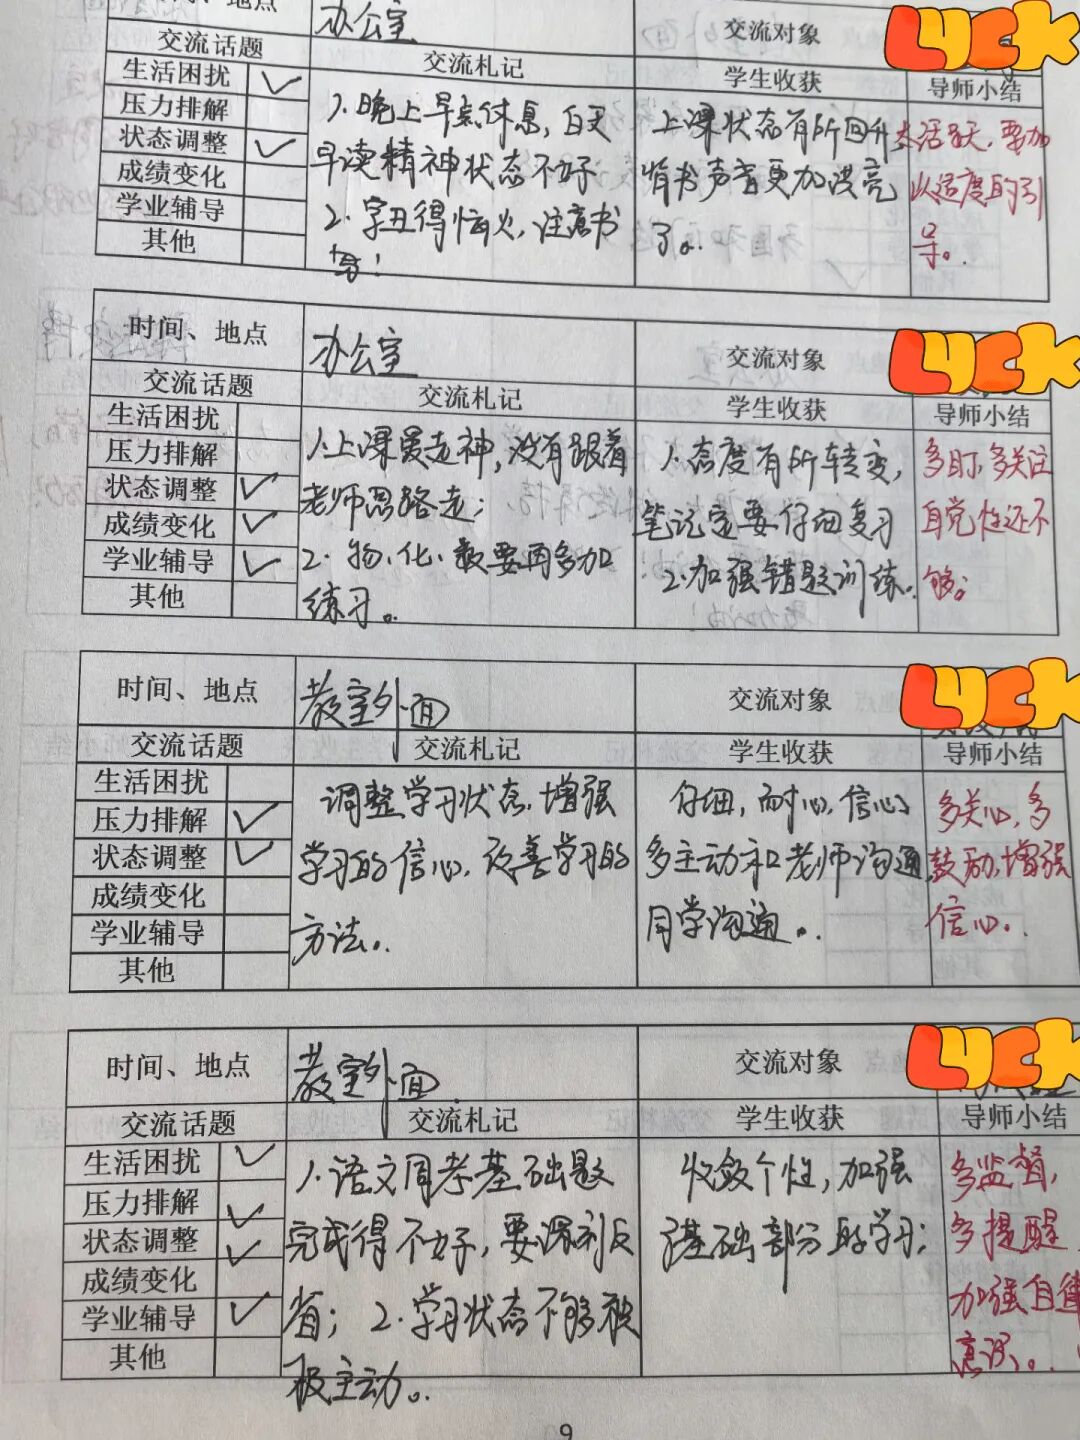 时间、地点 办公室 交流对象 LUCK
交流话题 交流札记 学生收获 导师小结
生活困扰 ✓
压力排解
状态调整 ✓
成绩变化
学业辅导
其他
1.晚上早点休息,白天
早读精神状态不好
2.字丑得恼火,注意书
写!
上课状态有所回升
背书声音更加洪亮
了。
太活跃,要加
以适度的引
导。
时间、地点 办公室 交流对象 LUCK
交流话题 交流札记 学生收获 导师小结
生活困扰
压力排解
状态调整 ✓
成绩变化 ✓
学业辅导 ✓
其他
1.上课爱走神,没有跟着
老师思路走;
2.物、化、数要再多加
练习。
1.态度有所转变,
笔记定要仔细复习
2.加强错题训练.
多盯,多关注
自觉性还不
够。
时间、地点 教室外面 交流对象 LUCK
交流话题 交流札记 学生收获 导师小结
生活困扰
压力排解 ✓
状态调整 ✓
成绩变化
学业辅导
其他
调整学习状态,增强
学习的信心,改善学习的
方法。
仔细,耐心,信心
多主动和老师沟通,
同学沟通。
多关心,多
鼓励,增强
信心。
时间、地点 教室外面 交流对象 LUCK
交流话题 交流札记 学生收获 导师小结
生活困扰 ✓
压力排解 ✓
状态调整 ✓
成绩变化
学业辅导 ✓
其他
1.语文周考基础题
完成得不好,要深刻反
省;2.学习状态不够积
极主动。
收敛个性,加强
基础部分的学习;
多监督,
多提醒
加强自律
意识。
9